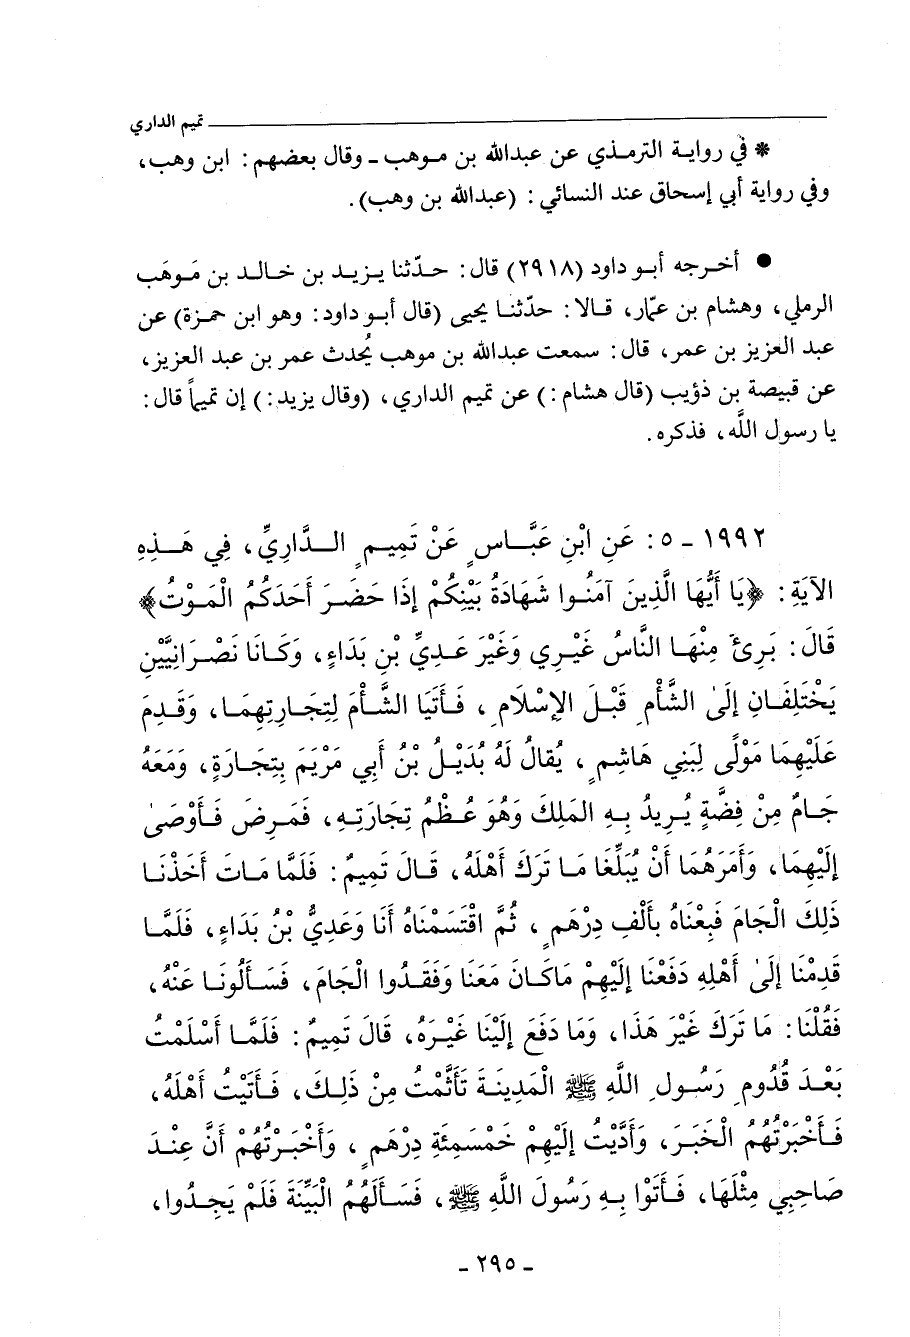 تميم الداري
* في رواية الترمذي عن عبدالله بن موهب ـ وقال بعضهم : ابن وهب ،
وفي رواية أبي إسحاق عند النسائي : (عبدالله بن وهب) .
● أخرجه أبو داود (٢٩١٨) قال : حدّثنا يزيد بن خالد بن مَوهَب
الرملي ، وهشام بن عمّار ، قالا : حدّثنا يحيى (قال أبو داود : وهو ابن حمزة) عن
عبد العزيز بن عمر ، قال : سمعت عبدالله بن موهب يُحدث عمر بن عبد العزيز ،
عن قبيصة بن ذؤيب (قال هشام :) عن تميم الداري ، (وقال يزيد :) إن تميماً قال :
يا رسول اللَّه ، فذكره .
١٩٩٢ ـ ٥ : عَنِ ابْنِ عَبَّاسٍ عَنْ تَمِيمٍ الدَّارِيِّ ، فِي هَذِهِ
الآيَةِ : ﴿يَا أَيُّهَا الَّذِينَ آمَنُوا شَهَادَةُ بَيْنِكُمْ إِذَا حَضَرَ أَحَدَكُمُ الْمَوْتُ﴾
قَالَ : بَرِئَ مِنْهَا النَّاسُ غَيْرِي وَغَيْرَ عَدِيِّ بْنِ بَدَاءٍ ، وَكَانَا نَصْرَانِيَّيْنِ
يَخْتَلِفَانِ إِلَىٰ الشَّأْمِ قَبْلَ الإِسْلَامِ ، فَأَتَيَا الشَّأْمَ لِتِجَارَتِهِمَا ، وَقَدِمَ
عَلَيْهِمَا مَوْلًى لِبَنِي هَاشِمٍ ، يُقَالُ لَهُ بُدَيْلُ بْنُ أَبِي مَرْيَمَ بِتِجَارَةٍ ، وَمَعَهُ
جَامٌ مِنْ فِضَّةٍ يُرِيدُ بِهِ المَلِكَ وَهُوَ عُظْمُ تِجَارَتِهِ ، فَمَرِضَ فَأَوْصَىٰ
إِلَيْهِمَا ، وَأَمَرَهُمَا أَنْ يُبَلِّغَا مَا تَرَكَ أَهْلَهُ ، قَالَ تَمِيمٌ : فَلَمَّا مَاتَ أَخَذْنَا
ذَلِكَ الْجَامَ فَبِعْنَاهُ بِأَلْفِ دِرْهَمٍ ، ثُمَّ اقْتَسَمْنَاهُ أَنَا وَعَدِيُّ بْنُ بَدَاءٍ ، فَلَمَّا
قَدِمْنَا إِلَىٰ أَهْلِهِ دَفَعْنَا إِلَيْهِمْ مَاكَانَ مَعَنَا وَفَقَدُوا الْجَامَ ، فَسَأَلُونَا عَنْهُ ،
فَقُلْنَا : مَا تَرَكَ غَيْرَ هَذَا ، وَمَا دَفَعَ إِلَيْنَا غَيْرَهُ ، قَالَ تَمِيمٌ : فَلَمَّا أَسْلَمْتُ
بَعْدَ قُدُومِ رَسُولِ اللَّهِ ﷺ الْمَدِينَةَ تَأَثَّمْتُ مِنْ ذَلِكَ ، فَأَتَيْتُ أَهْلَهُ ،
فَأَخْبَرْتُهُمُ الْخَبَرَ ، وَأَدَّيْتُ إِلَيْهِمْ خَمْسَمِئَةِ دِرْهَمٍ ، وَأَخْبَرْتُهُمْ أَنَّ عِنْدَ
صَاحِبِي مِثْلَهَا ، فَأَتَوْا بِهِ رَسُولَ اللَّهِ ﷺ ، فَسَأَلَهُمُ الْبَيِّنَةَ فَلَمْ يَجِدُوا ،
ـ ٢٩٥ ـ